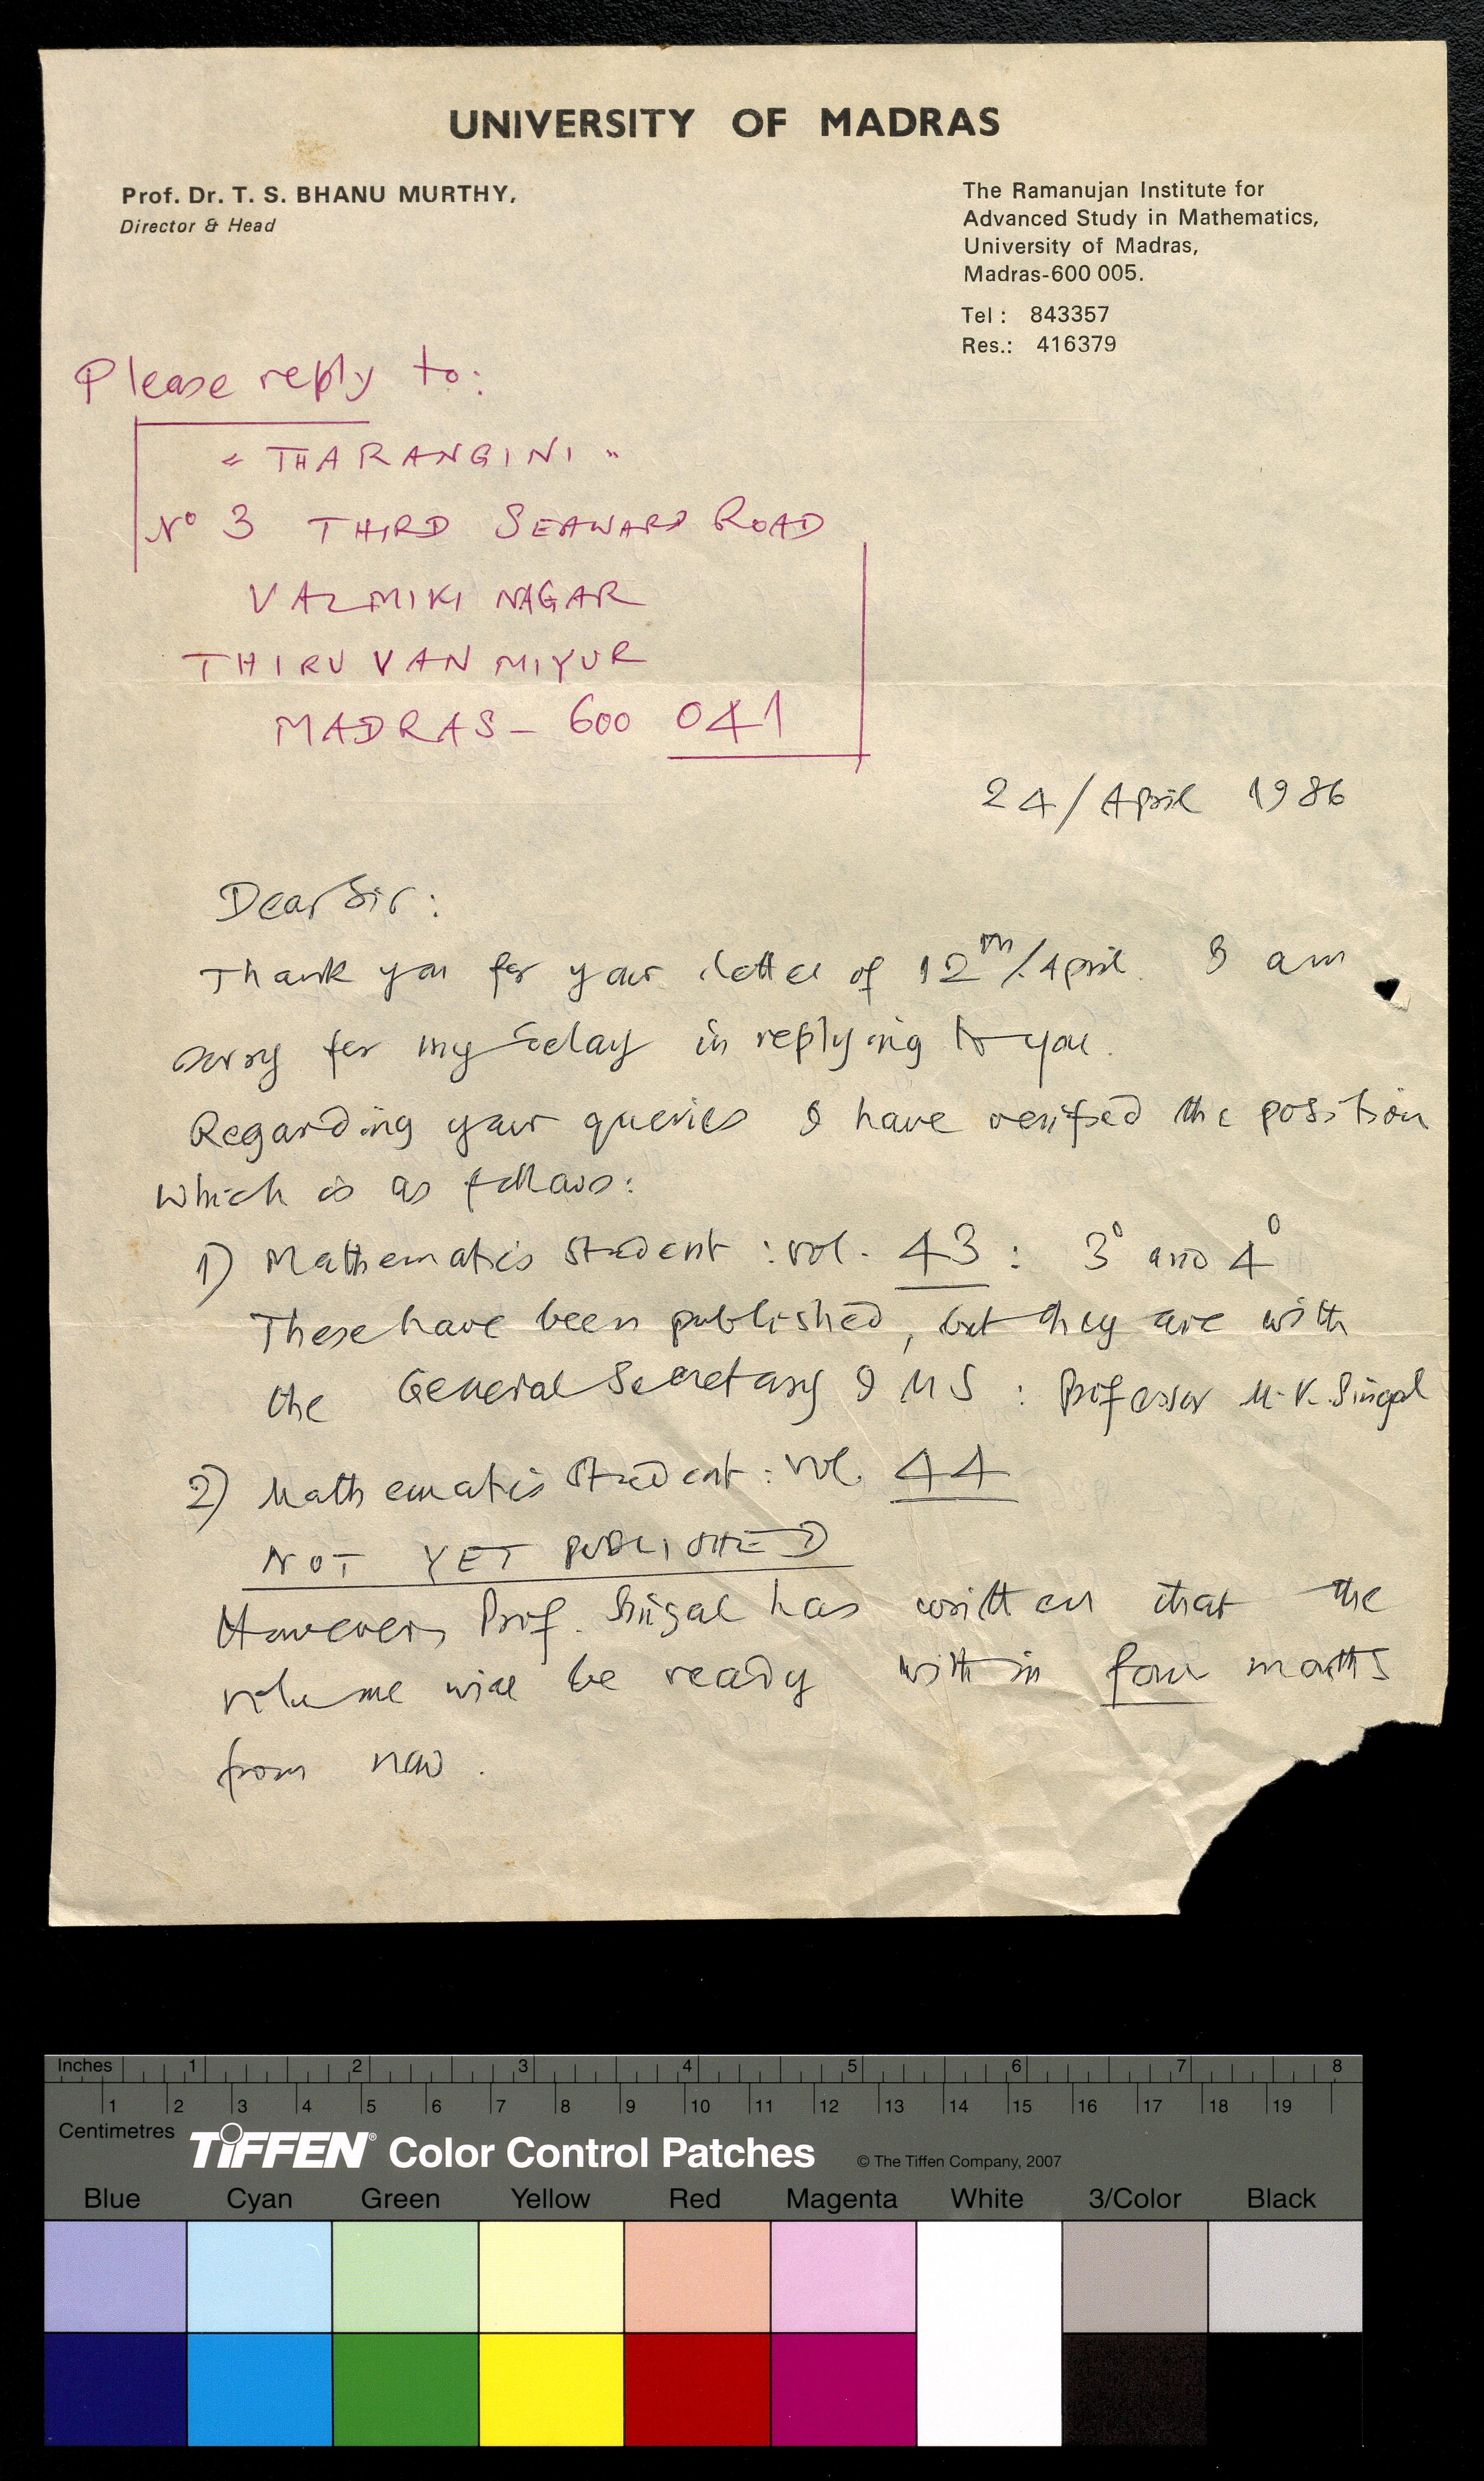 UNIVERSITY OF MADRAS
Prof. Dr. T. S. BHANU MURTHY,
Director & Head
The Ramanujan Institute for
Advanced Study in Mathematics,
University of Madras,
Madras-600 005.
Tel : 843357
Res.: 416379
Please reply to:
"THARANGINI"
No 3 THIRD SEAWARD ROAD
VALMIKI NAGAR
THIRUVANMIYUR
MADRAS - 600 041
24/April 1986
Dear Sir:
Thank you for your letter of 12th/April. I am
sorry for my delay in replying to you.
Regarding your queries I have verified the position
which is as follows:
1) Mathematics Student : vol. 43 : 3° and 4°
These have been published, but they are with
the General Secretary IMS : Professor M.K. Singal
2) Mathematics Student : vol. 44
NOT YET PUBLISHED
However, Prof. Singal has written that the
volume will be ready within four months
from now.
Inches 1 2 3 4 5 6 7 8
1 2 3 4 5 6 7 8 9 10 11 12 13 14 15 16 17 18 19
Centimetres
TIFFEN® Color Control Patches © The Tiffen Company, 2007
Blue Cyan Green Yellow Red Magenta White 3/Color Black